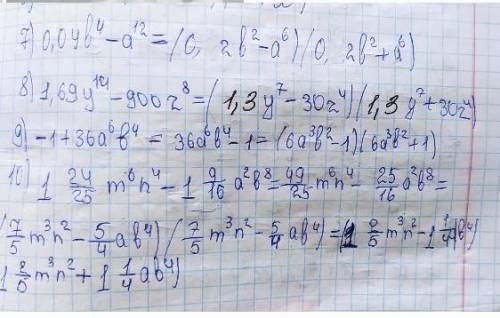 7) 0,04b⁴-a¹²=(0, 2b²-a⁶)(0, 2b²+a⁶)
8) 1,69y¹⁴-900z⁸=(1,3y⁷-30z⁴)(1,3y⁷+30z⁴)
9) -1+36a⁶b⁴ = 36a⁶b⁴-1=(6a³b²-1)(6a³b²+1)
10) 1 24/25 m⁶n⁴-1 9/16 a²b⁸=49/25 m⁶n⁴ - 25/16 a²b⁸=
(7/5 m³n²-5/4 ab⁴)(7/5 m³n²-5/4 ab⁴)=(1 2/5 m³n²-1 1/4 ab⁴)
1 2/5 m³n²+1 1/4 ab⁴)